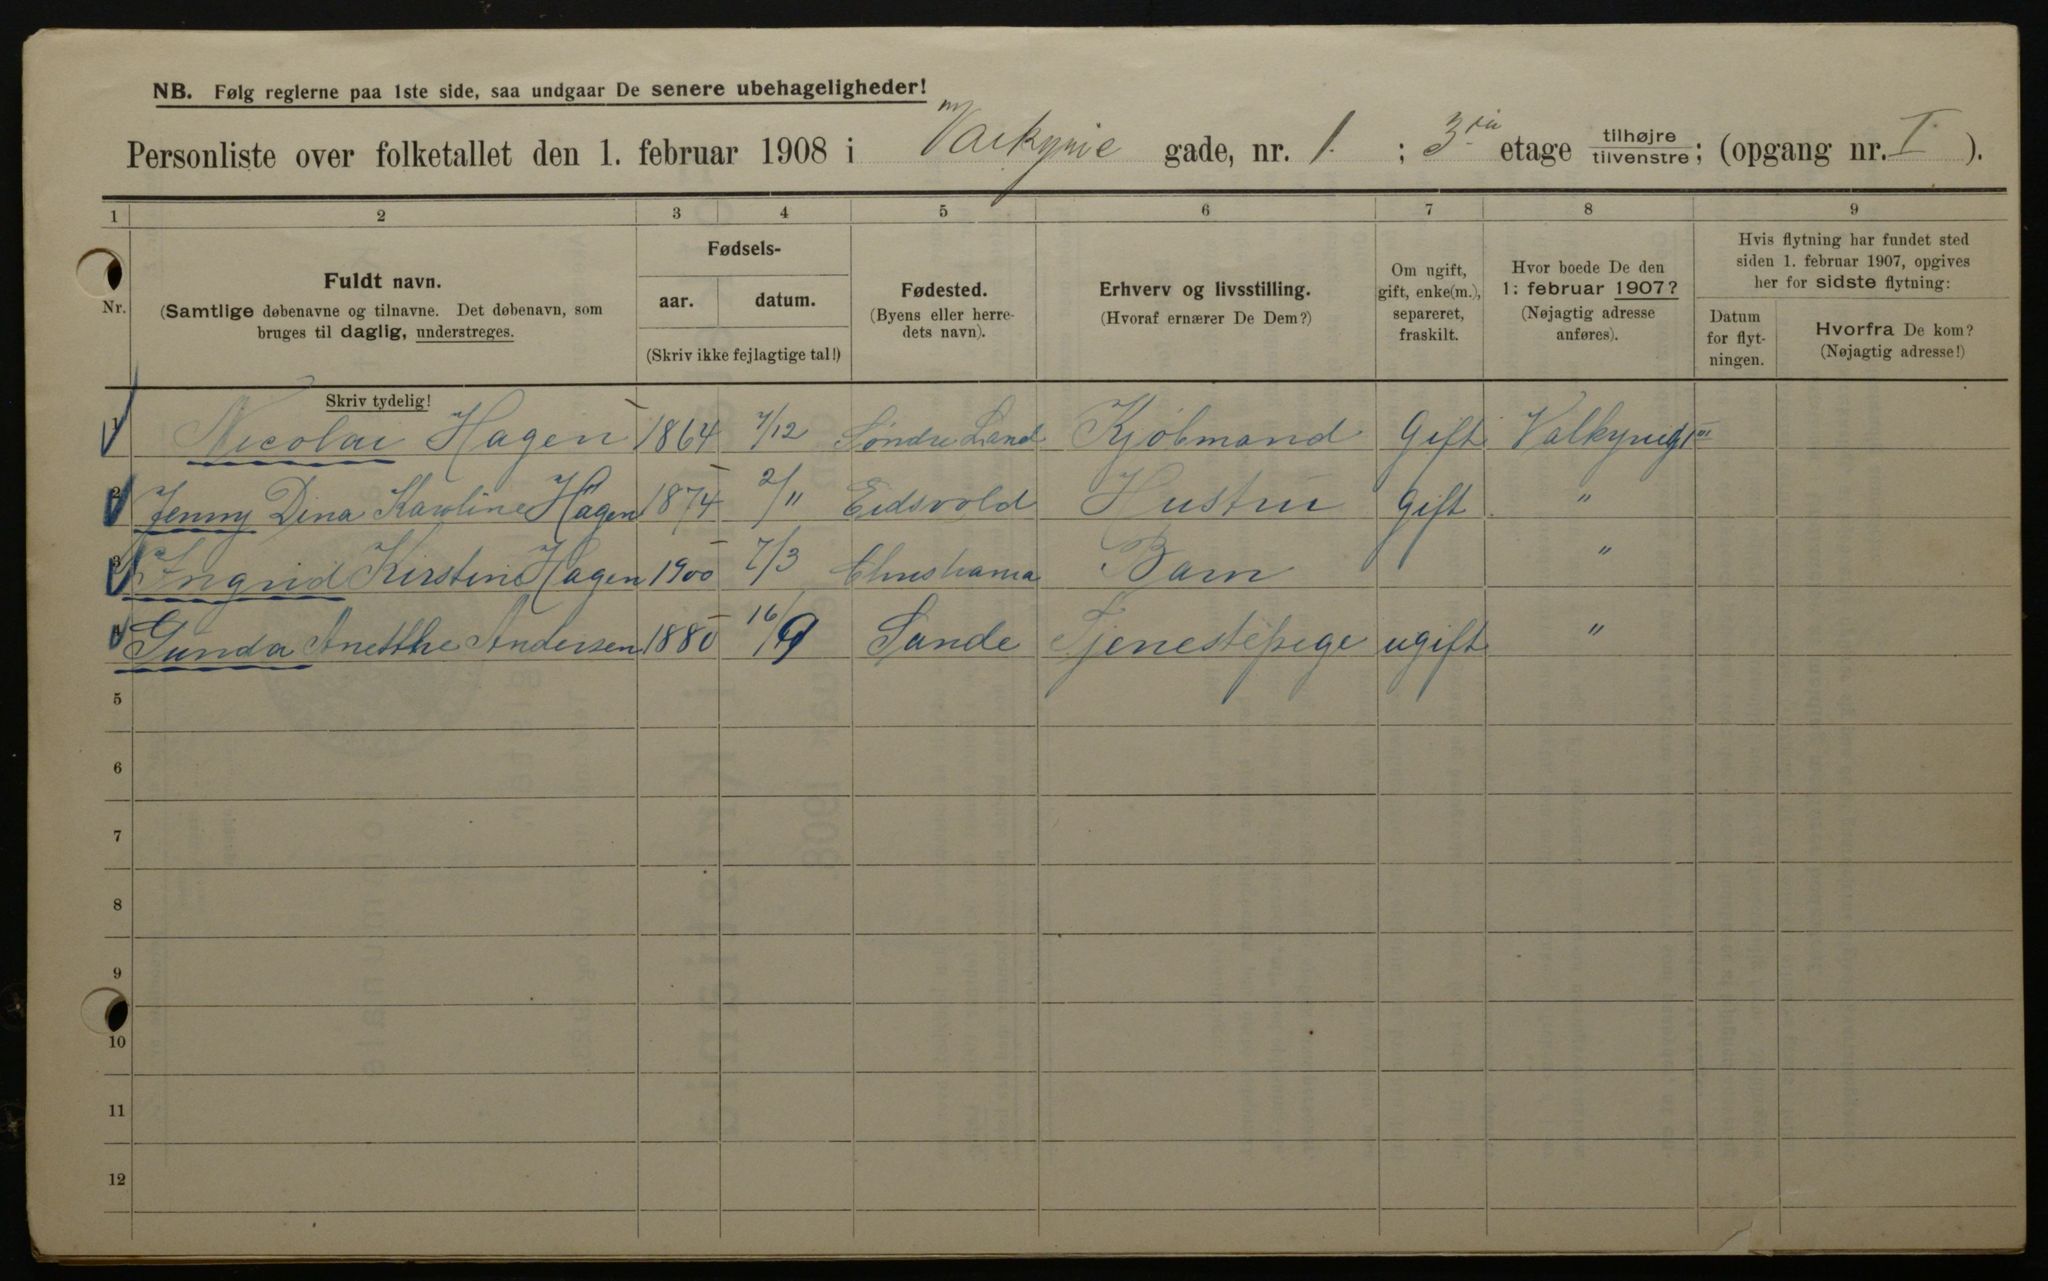 NB. Følg reglerne paa 1ste side, saa undgaar De senere ubehageligheder!
Personliste over folketallet den 1. februar 1908 i Valkyrie gade, nr. 1. ; 3die etage tilhøjre/tilvenstre; (opgang nr. I ).
1 2 3 4 5 6 7 8 9
Nr.
Fuldt navn.
(Samtlige døbenavne og tilnavne. Det døbenavn, som
bruges til daglig, understreges.
Skriv tydelig!
Fødsels-
aar. datum.
(Skriv ikke fejlagtige tal!)
Fødested.
(Byens eller herre-
dets navn).
Erhverv og livsstilling.
(Hvoraf ernærer De Dem?)
Om ugift,
gift, enke(m.),
separeret,
fraskilt.
Hvor boede De den
1: februar 1907?
(Nøjagtig adresse
anføres).
Hvis flytning har fundet sted
siden 1. februar 1907, opgives
her for sidste flytning:
Datum
for flyt-
ningen.
Hvorfra De kom?
(Nøjagtig adresse!)
1 Nicolai Hagen 1864 7/12 Søndre Land Kjøbmand Gift Valkyriegd 1 III
2 Jenny Dina Karoline Hagen 1874 2/11 Eidsvold Hustru gift "
3 Ingrid Kirstine Hagen 1900 7/3 Christiania Barn "
4 Gunda Anetthe Andersen 1880 16/9 Sande Tjenestepige ugift "
5
6
7
8
9
10
11
12